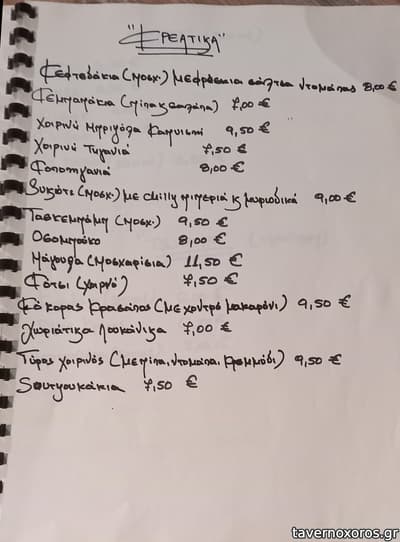 "ΚΡΕΑΤΙΚΑ"
Κεφτεδάκια (μοσχ.) με φρέσκια σάλτσα ντομάτας 8,00 €
7,00 €
Χοιρινή Μπριζόλα Καπνιστή 9,50 €
Χοιρινή Τηγανιά 7,50 €
8,00 €
Συκώτι (μοσχ.) με chilly πιπεριά & μυρωδικά 9,00 €
Τασκεμπάμπ (μοσχ.) 9,50 €
Οσομπούκο 8,00 €
Μάγουλα (μοσχαρίσια) 11,50 €
Κότσι (χοιρνό) 7,50 €
Κόκορας Κρασάτος (με χοντρό μακαρόνι) 9,50 €
Χωριάτικα Λουκάνικα 7,00 €
Γύρος χοιρινός (με πίτα, ντομάτα, κρεμμύδι) 9,50 €
Σουτζουκάκια 7,50 €
tavernoxoros.gr